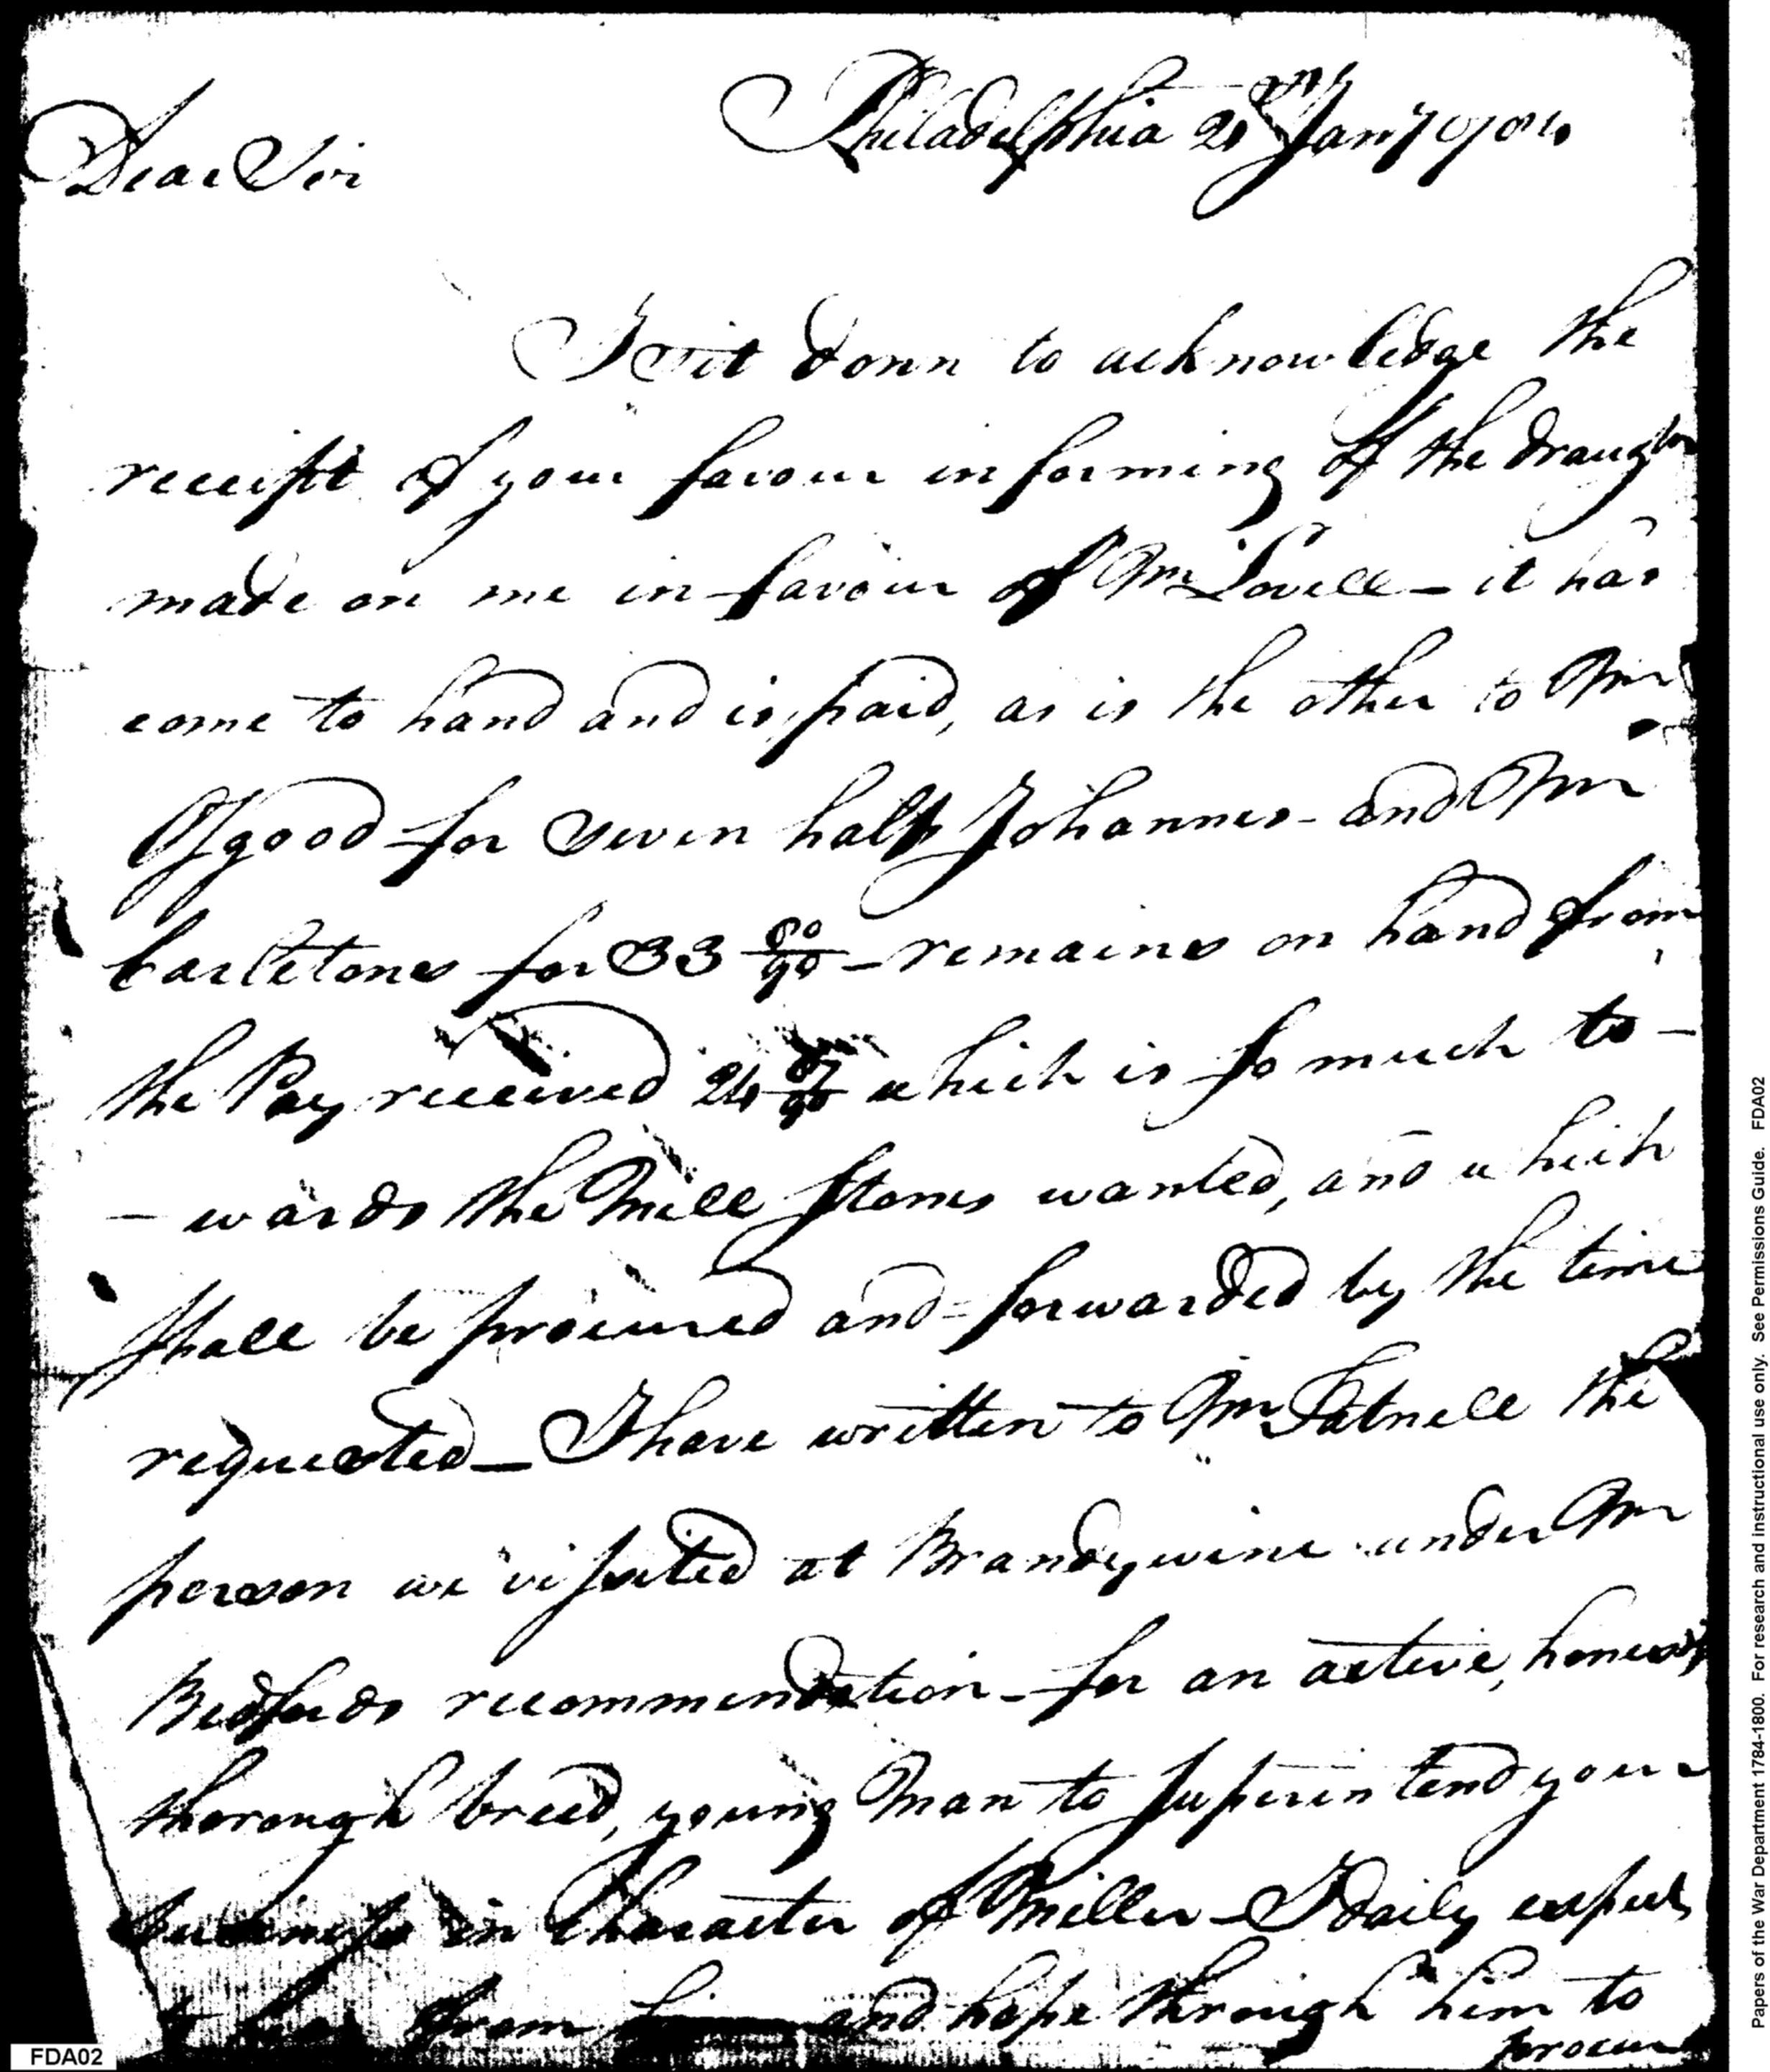 Philadelphia 2nd Jany 1784
Dear Sir
I sit down to acknowledge the
receipt of your favour informing of the draught
made on me in favour of Mr Lovell - it has
come to hand and is paid, as is the other to Mr
Osgood for seven half Johannes - and Mr
Carletones for 33 80/90 - remains on hand from
the Pay received 24 which is so much to -
- wards the Mill stones wanted, and which
shall be procured and forwarded by the time
requested - I have written to Mr Tatnell the
person we visited at Brandywine under Mr
Bedfords recommendation - for an active, honest,
thorough breed, young Man to superintend your
business in Character of Miller - I daily expect
from and hope through him to
procure
FDA02
Papers of the War Department 1784-1800. For research and instructional use only. See Permissions Guide. FDA02